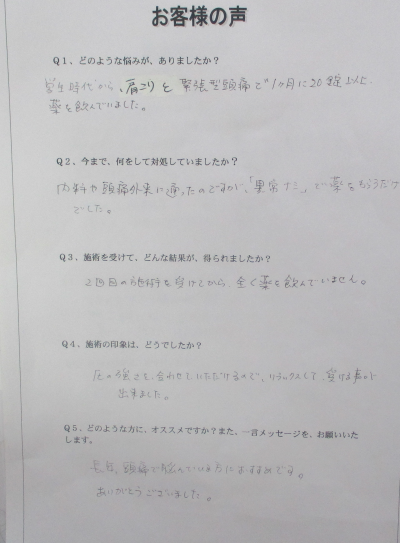 お客様の声
Q1、どのような悩みが、ありましたか？
学生時代から、肩こりと緊張型頭痛で1ヶ月に20錠以上、
薬を飲んでいました。
Q2、今まで、何をして対処していましたか？
内科や頭痛外来に通ったのですが、「異常ナシ」で薬をもらうだけ
でした。
Q3、施術を受けて、どんな結果が、得られましたか？
2回目の施術を受けてから、全く薬を飲んでいません。
Q4、施術の印象は、どうでしたか？
圧の強さを、合わせていただけるので、リラックスして、受ける事が
出来ました。
Q5、どのような方に、オススメですか？また、一言メッセージを、お願いいた
します。
長年、頭痛で悩んでいる方におすすめです。
ありがとうございました。